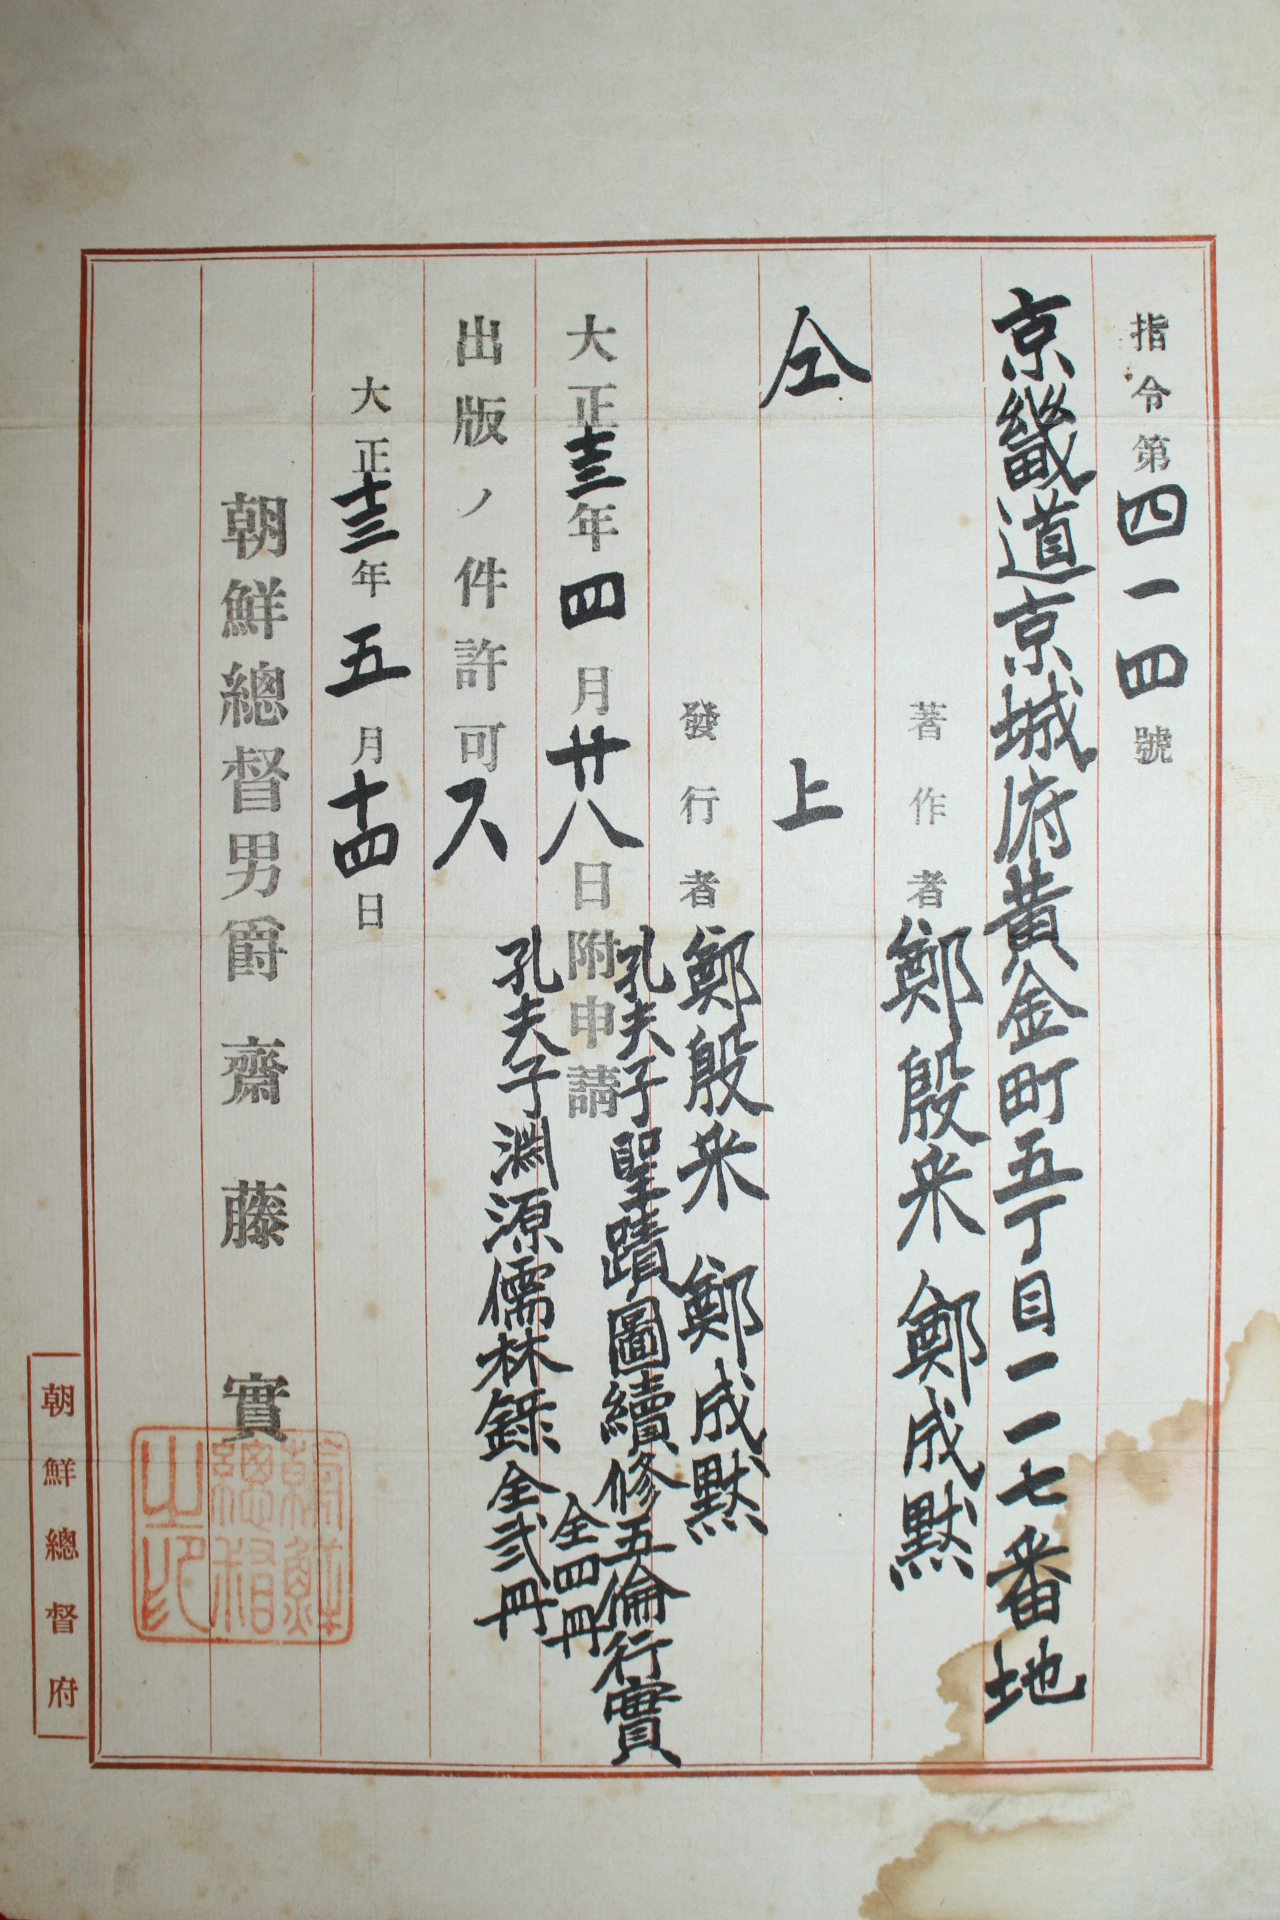 指令第四一四號
京畿道京城府黃金町五丁目一一七番地
著作者鄭殷采 鄭成默
仝上
發行者鄭殷采 鄭成默
大正十三年四月廿八日附申請
孔夫子聖蹟圖續修五倫行實全四冊
孔夫子淵源儒林錄全貳冊
出版ノ件許可ス
大正十三年五月十四日
朝鮮總督男爵齋藤實
朝鮮總督之印
朝鮮總督府